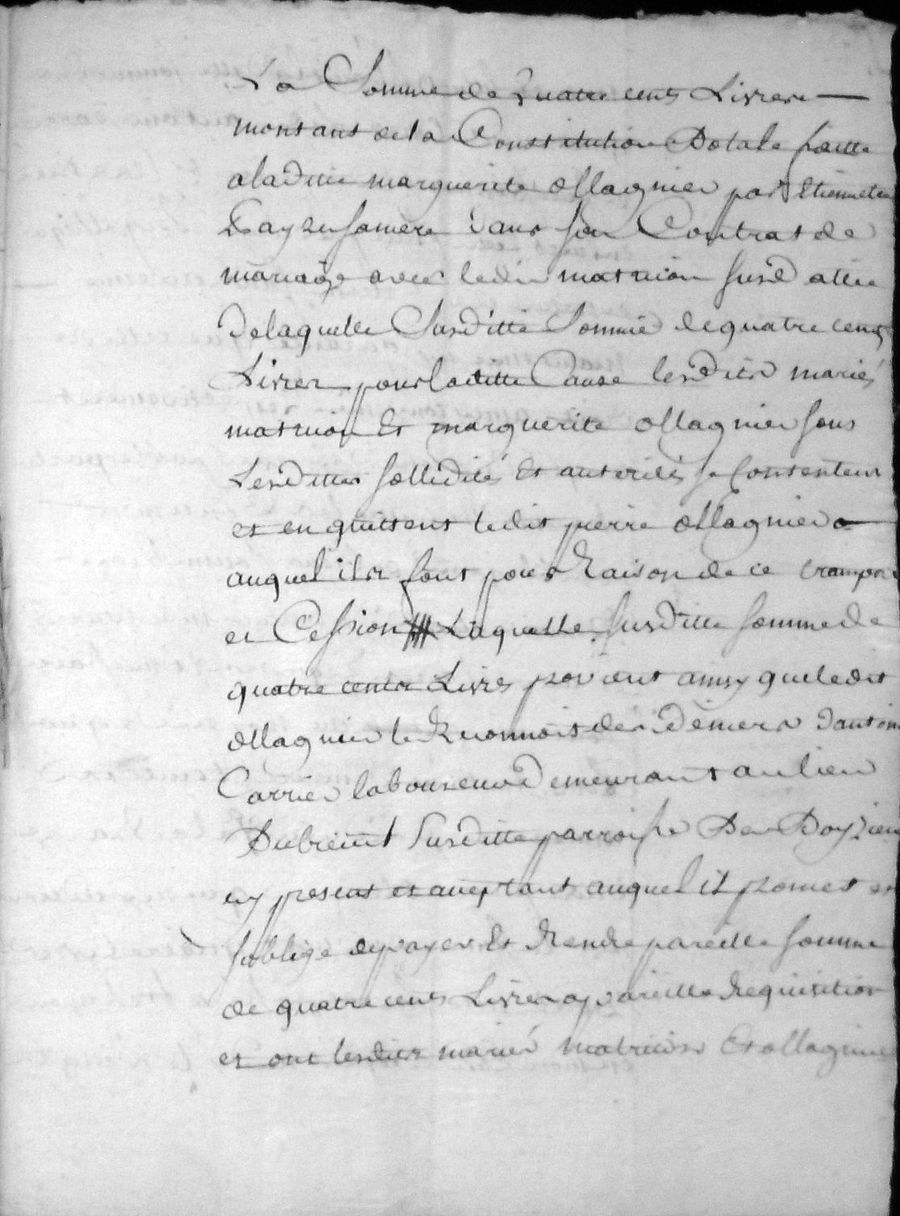 La Somme de quatre cents Livres
montant de la Constitution Dotale faitte
a laditte marguerite ollagnier par Etiennette
sa mere dans son Contrat de
mariage avec ledit matricon susd attée
de laquelle Susditte Somme de quatre cents
Livres pour laditte Cause lesdits mariés
matricon Et marguerite ollagnier sous
Lesdittes sollidité Et autorités se Contentent
et en quittent ledit pierre ollagnier
auquel ils font pour Raison de ce transport
et Cession Laquelle susditte somme de
quatre cents Livres provient ainsy que ledit
ollagnier le Reconnois des deniers d'antoine
Carrier laboureur demeurant au lieu
Dubreüil Susditte parroisse De Doyzieu
cy present et aceptant auquel il promet et
soblige de payer Et Rendre pareille somme
de quatre cents Livres a pareille Requisition
et ont lesdits mariés matricon Et ollagnier